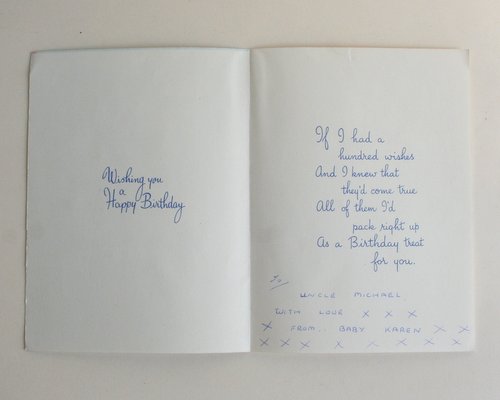 Wishing you
a
Happy Birthday
If I had a
hundred wishes
And I knew that
they'd come true
All of them I'd
pack right up
As a Birthday treat
for you.
To
UNCLE MICHAEL
WITH LOVE X X X
X FROM.. BABY KAREN X X
X X X X X X X X